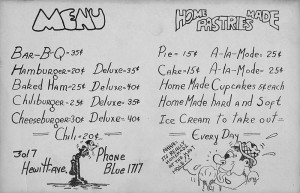 MENU
BAR-B-Q=35¢
Hamburger=20¢ Deluxe=35¢
Baked Ham=25¢ Deluxe=40¢
Chiliburger=25¢ Deluxe=35¢
Cheeseburger=30¢ Deluxe=40¢
Chili=20¢
3017
Hewitt Ave,
Phone
Blue 1717
HOME MADE
PASTRIES
Pie=15¢ A-la-Mode=25¢
Cake=15¢ A-la-Mode=25¢
Home Made Cupcakes 5¢ each
Home Made hard and Soft
Ice Cream to take out
Every Day